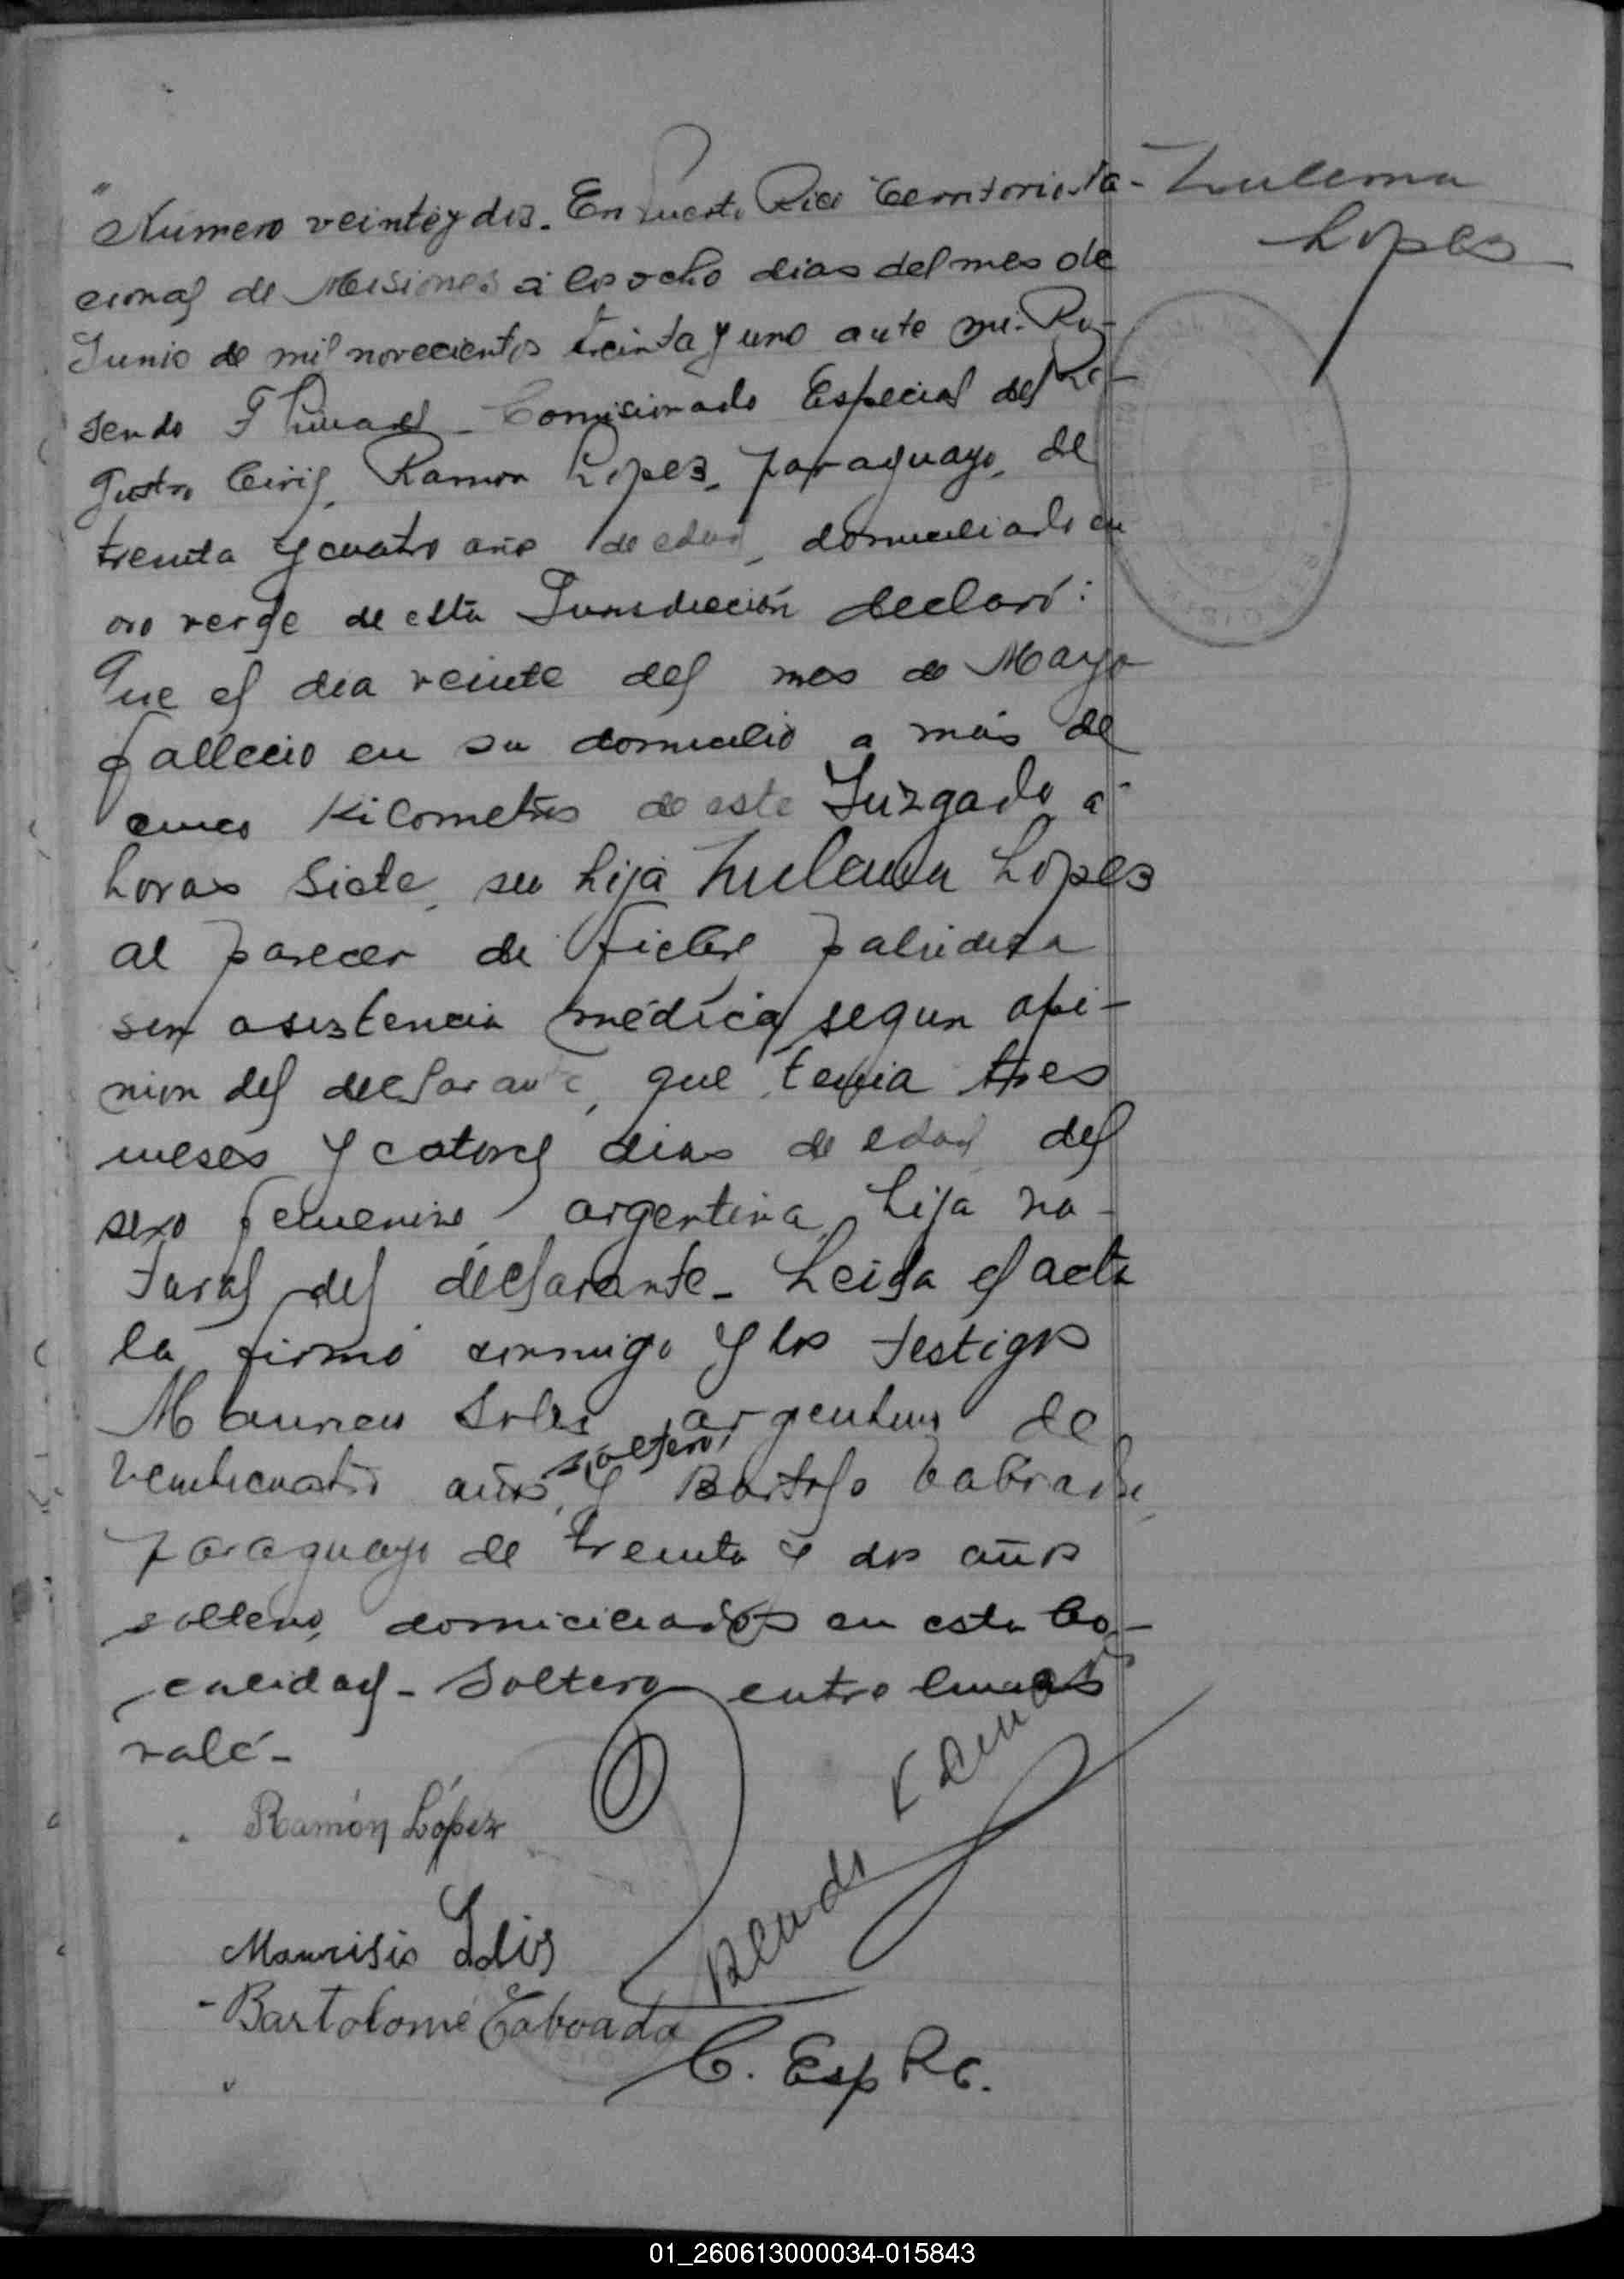 Zulema
Lopez
"Número veintiydos. En Puerto Rico Territorio Na-
cional de Misiones á los ocho dias del mes de
Junio de mil novecientos treinta y uno ante mi. Ro-
sendo F Comisionado Especial del Re-
gistro Civil, Ramon Lopez, paraguayo, de
treinta y cuatro años de edad, domiciliado en
oro verde de esta Jurisdicción declaró:
Que el dia veinte del mes de Mayo
fallecio en su domicilio a más de
cinco Kilometros de este Juzgado á
horas siete, su hija Zulema Lopez
al parecer de fiebre paludica
sin asistencia médica segun opi-
nion del declarante, que tenia tres
meses y catorce dias de edad, del
sexo femenino, argentina, hija na-
tural del declarante. Leida el acta
la firmó conmigo y los testigos
Mauricio Solis, argentino de
veinticuatro años, soltero, y Bartolo Taboada,
paraguayo de treinta y dos años
soltero, domiciliados en esta lo-
calidad. Soltero entre lineas
vale.
Ramón López
Maurisio Solis
Bartolomé Taboada
C. Esp R C.
01_260613000034-015843